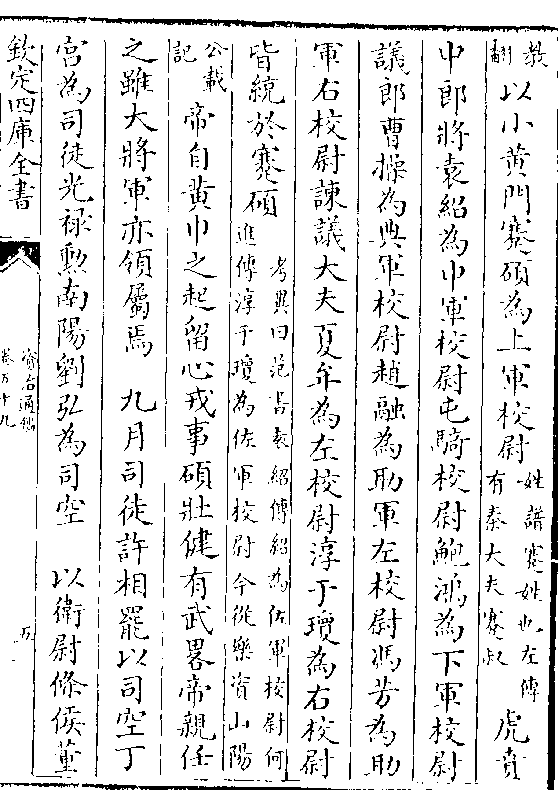 教翻以小黃門蹇碩為上軍校尉姓譜蹇姓也左傳有秦大夫蹇叔虎賁
中郎將袁紹為中軍校尉屯騎校尉鮑鴻為下軍校尉
議郎曹操為典軍校尉趙融為助軍左校尉馮芳為助
軍右校尉諫議大夫夏牟為左校尉淳于瓊為右校尉
皆統於蹇碩考異曰范書袁紹傳紹為佐軍校尉何進傳淳于瓊為佐軍校尉今從樂資山陽
公載記帝自黃巾之起留心戎事碩壯健有武畧帝親任
之雖大將軍亦領屬焉 九月司徒許相罷以司空丁
宮為司徒光祿勲南陽劉弘為司空 以衛尉條侯董
欽定四庫全書
資治通鑑
卷五十九
五